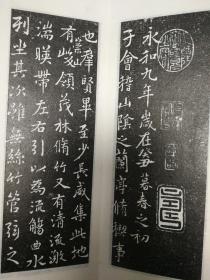 永和九年歲在癸丑暮春之初
會于會稽山陰之蘭亭脩稧事
也羣賢畢至少長咸集此地
有崇山峻領茂林脩竹又有清流激
湍暎帶左右引以為流觴曲水
列坐其次雖無絲竹管弦之